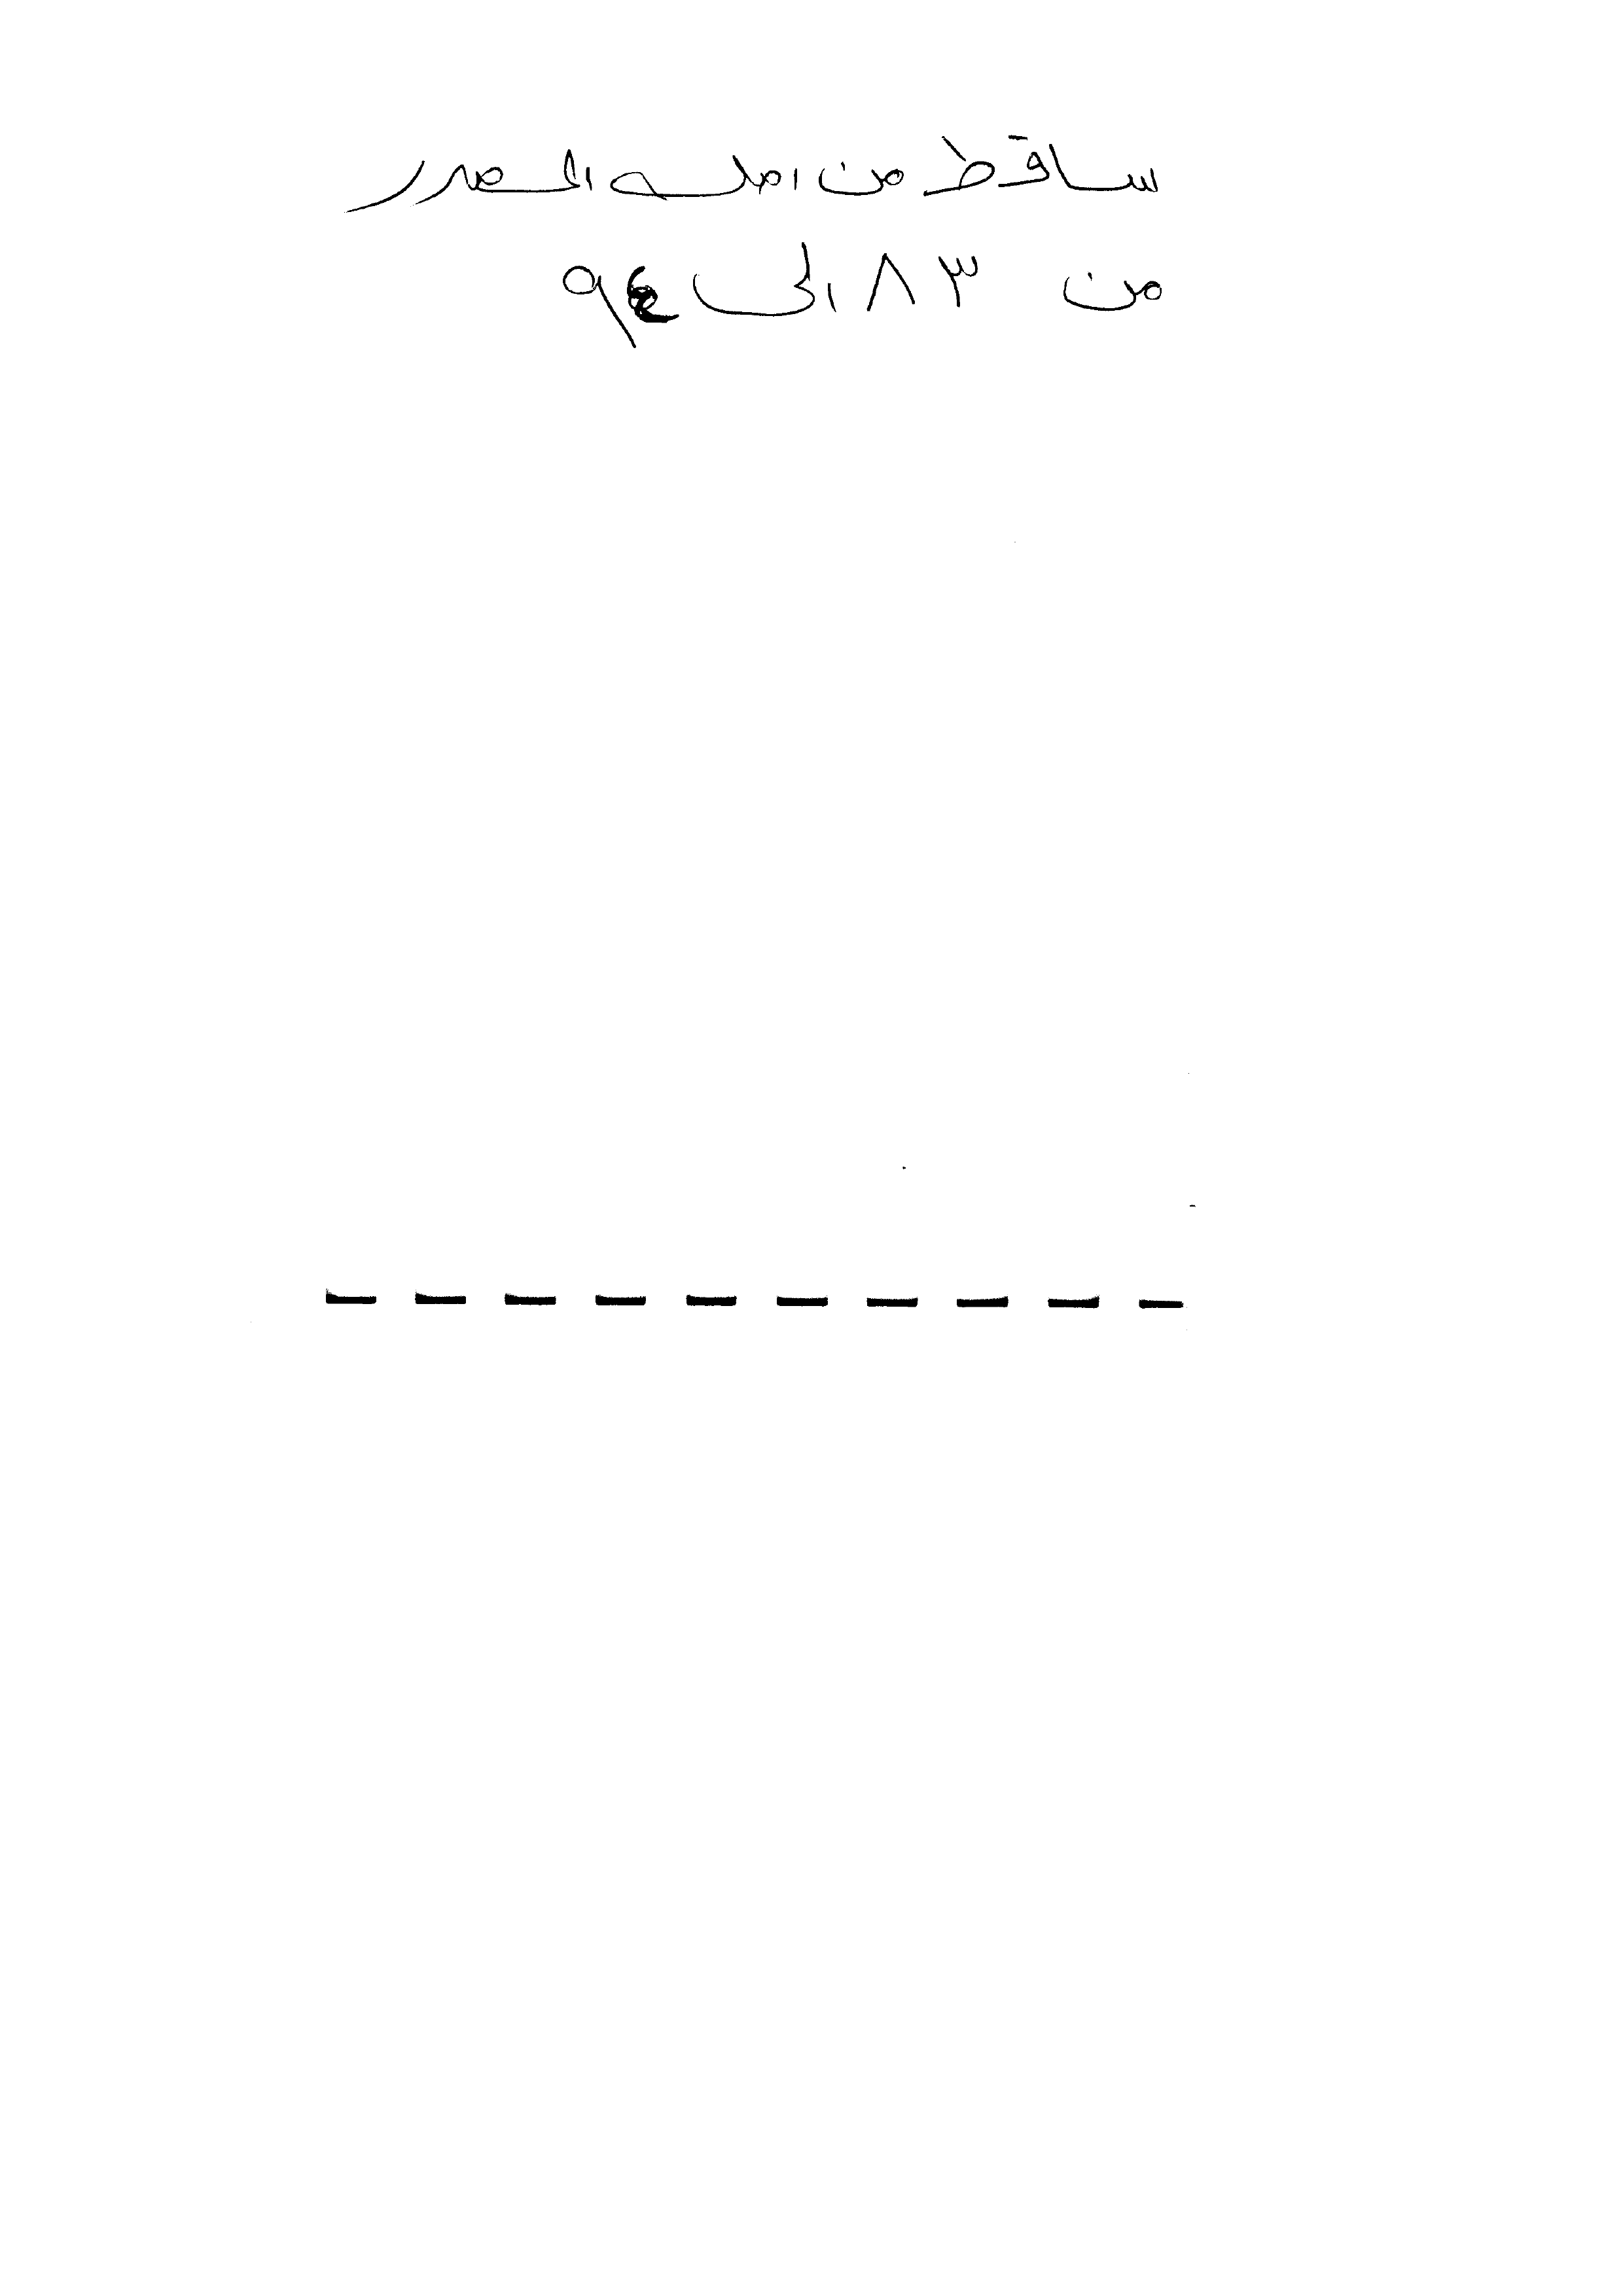 ساقط من اصل المصدر
من ٨٣ الى ٩٤